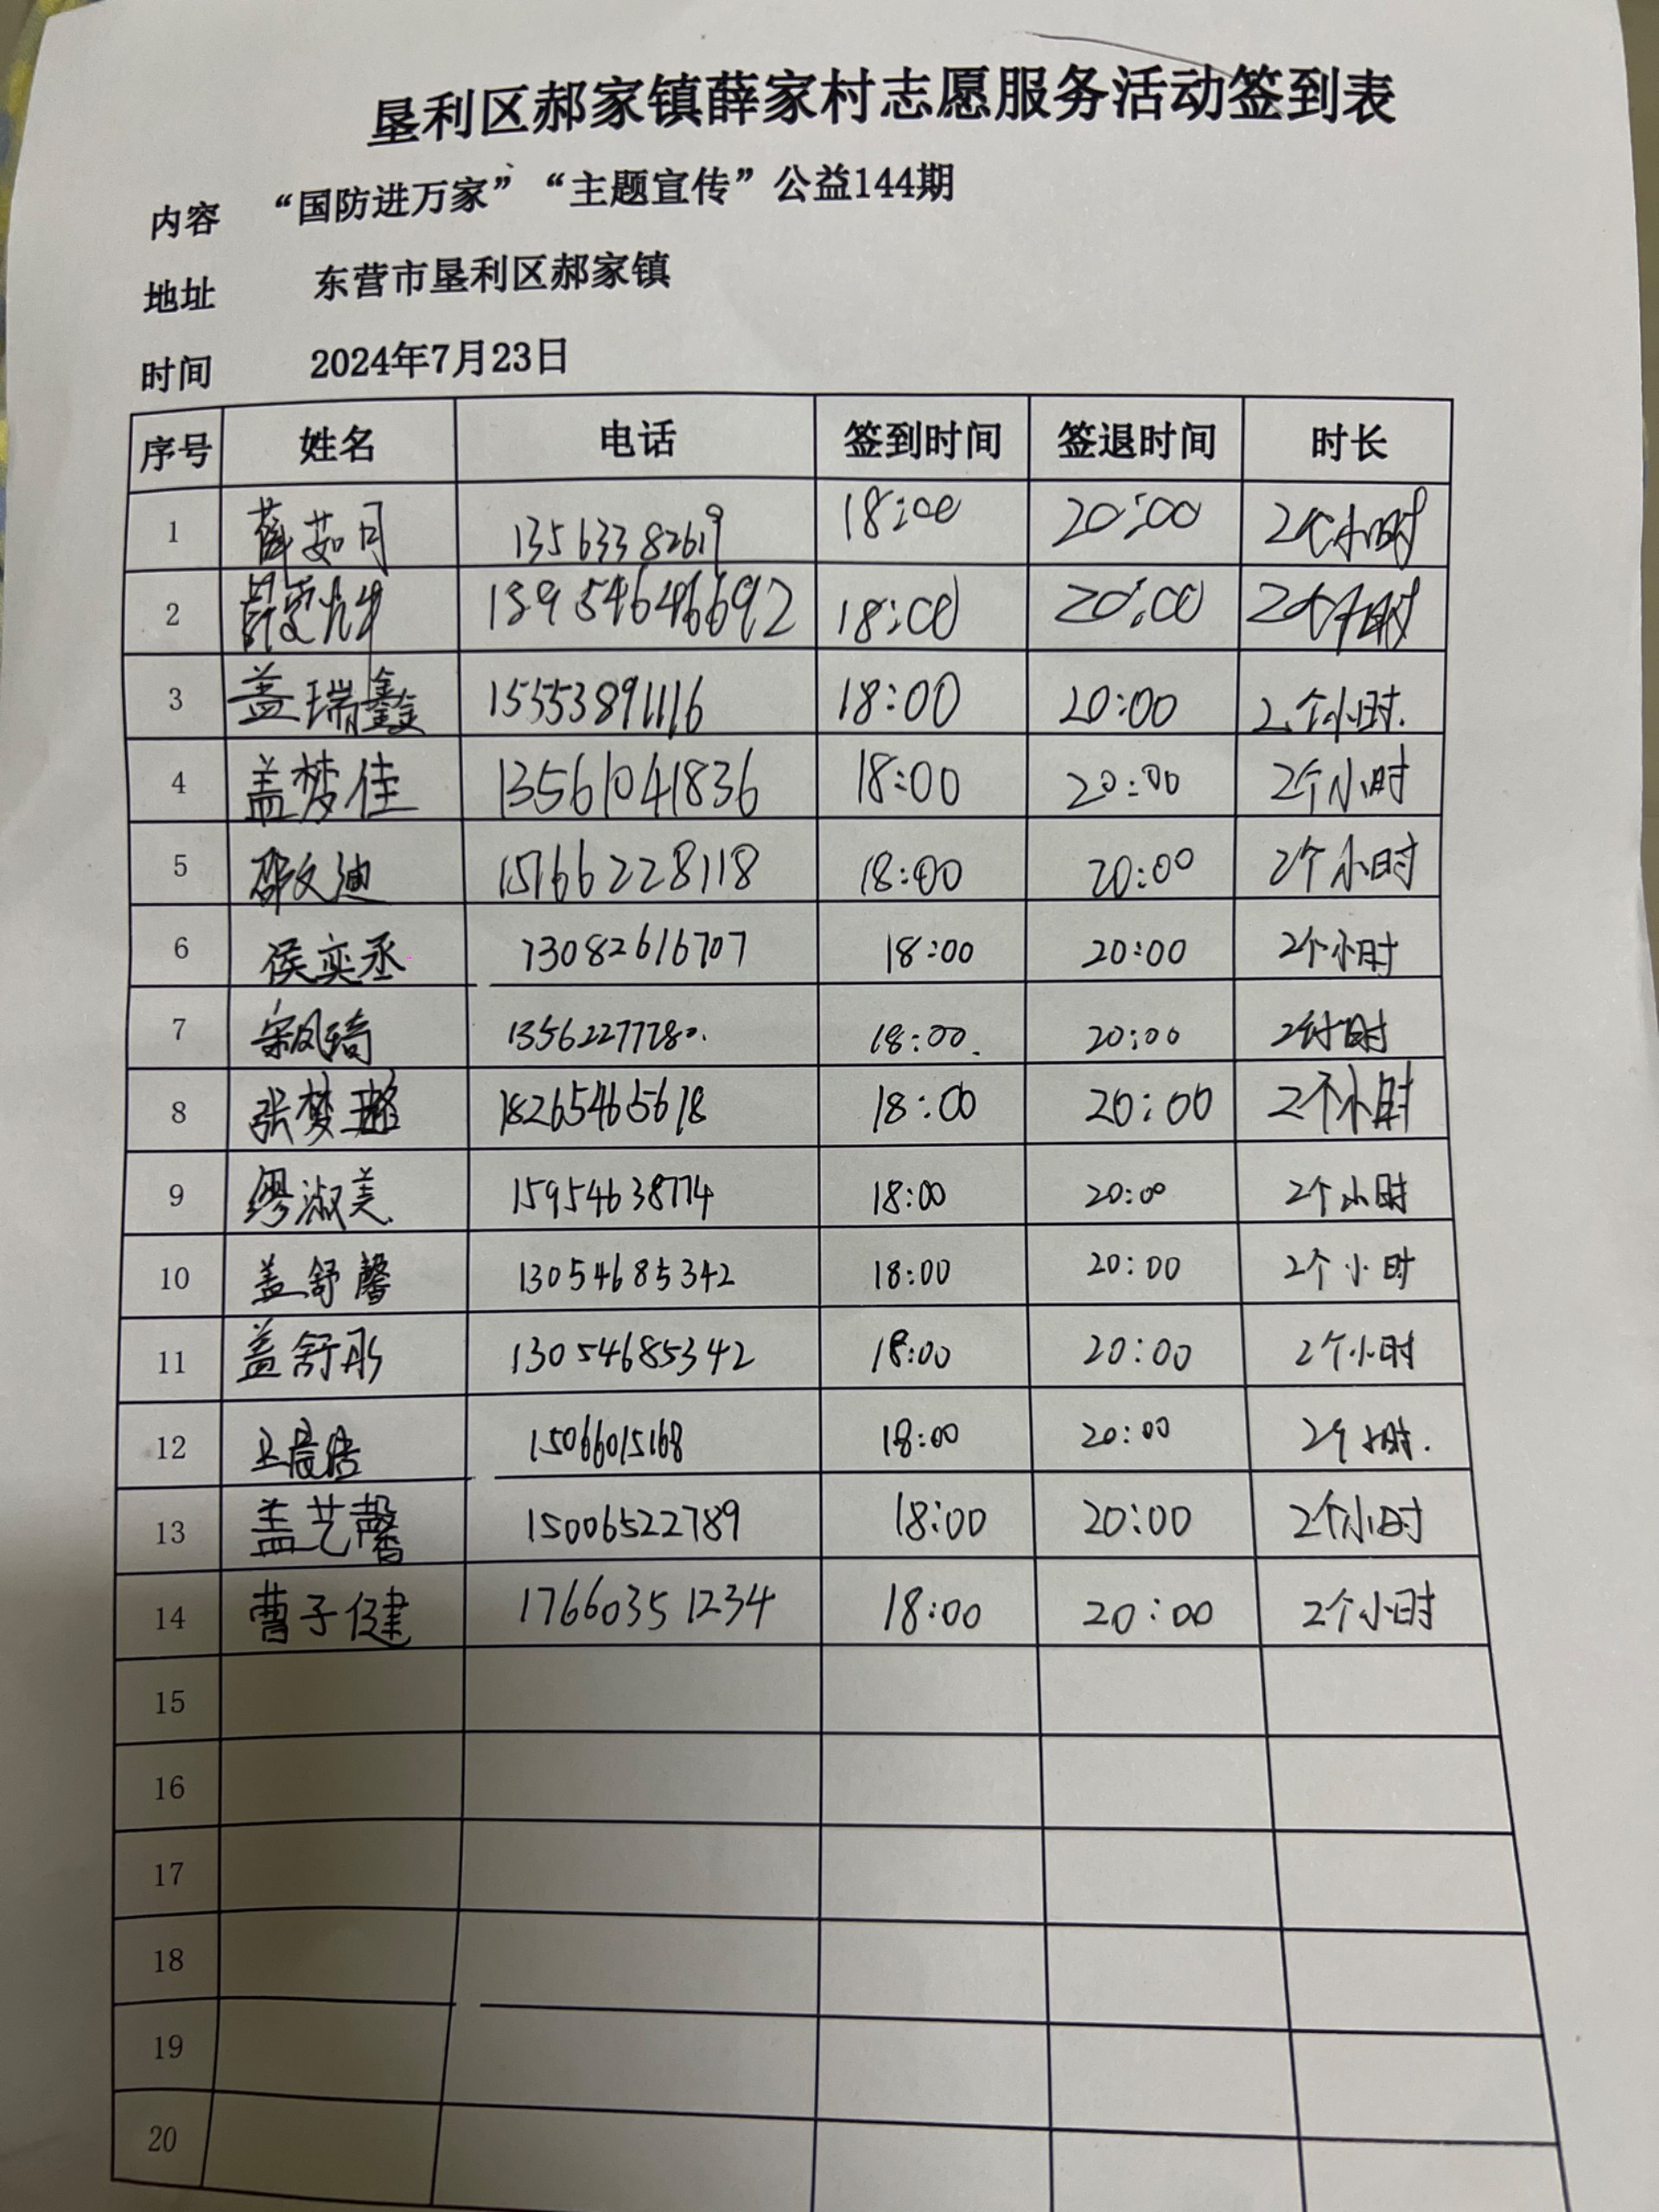 垦利区郝家镇薛家村志愿服务活动签到表
内容 “国防进万家”“主题宣传”公益144期
地址 东营市垦利区郝家镇
时间 2024年7月23日
序号 姓名 电话 签到时间 签退时间 时长
1 薛茹月 13563382619 18:00 20:00 2个小时
2 18:00 20:00 2个小时
3 盖瑞鑫 15553891116 18:00 20:00 2个小时.
4 盖梦佳 13561041836 18:00 20:00 2个小时
5 邵文迪 15166228118 18:00 20:00 2个小时
6 侯奕丞 13082616707 18:00 20:00 2个小时
7 宋凤琦 13562277280. 18:00. 20:00 2个小时
8 张梦璐 18265465618 18:00 20:00 2个小时
9 缪淑美 15954638774 18:00 20:00 2个小时
10 盖舒馨 13054685342 18:00 20:00 2个小时
11 盖舒彤 13054685342 18:00 20:00 2个小时
12 15066015168 18:00 20:00 2个小时.
13 盖艺馨 15006522789 18:00 20:00 2个小时
14 曹子健 17660351234 18:00 20:00 2个小时
15
16
17
18
19
20